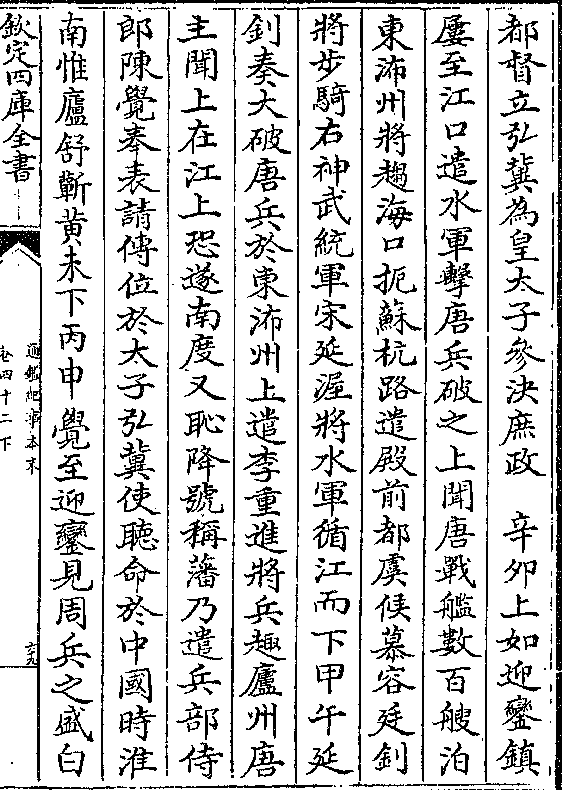 都督立弘冀為皇太子參決庶政　辛卯上如迎鑾鎮
屢至江口遣水軍擊唐兵破之上聞唐戰艦數百艘泊
東㳍州將趨海口扼蘇杭路遣殿前都虞候慕容廷釗
將步騎右神武統軍宋延渥將水軍循江而下甲午延
釗奏大破唐兵於東㳍州上遣李重進將兵趣廬州唐
主聞上在江上恐遂南度又恥降號稱藩乃遣兵部侍
郎陳覺奉表請傳位於太子弘冀使聽命於中國時淮
南惟廬舒蘄黃未下丙申覺至迎鑾見周兵之盛白
欽定四庫全書
通鑑紀事本末
卷四十二下
六九